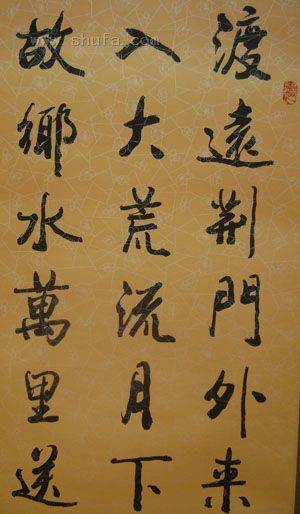 渡遠荊門外来
入大荒流月下
故鄉水萬里送
www.shufa.com